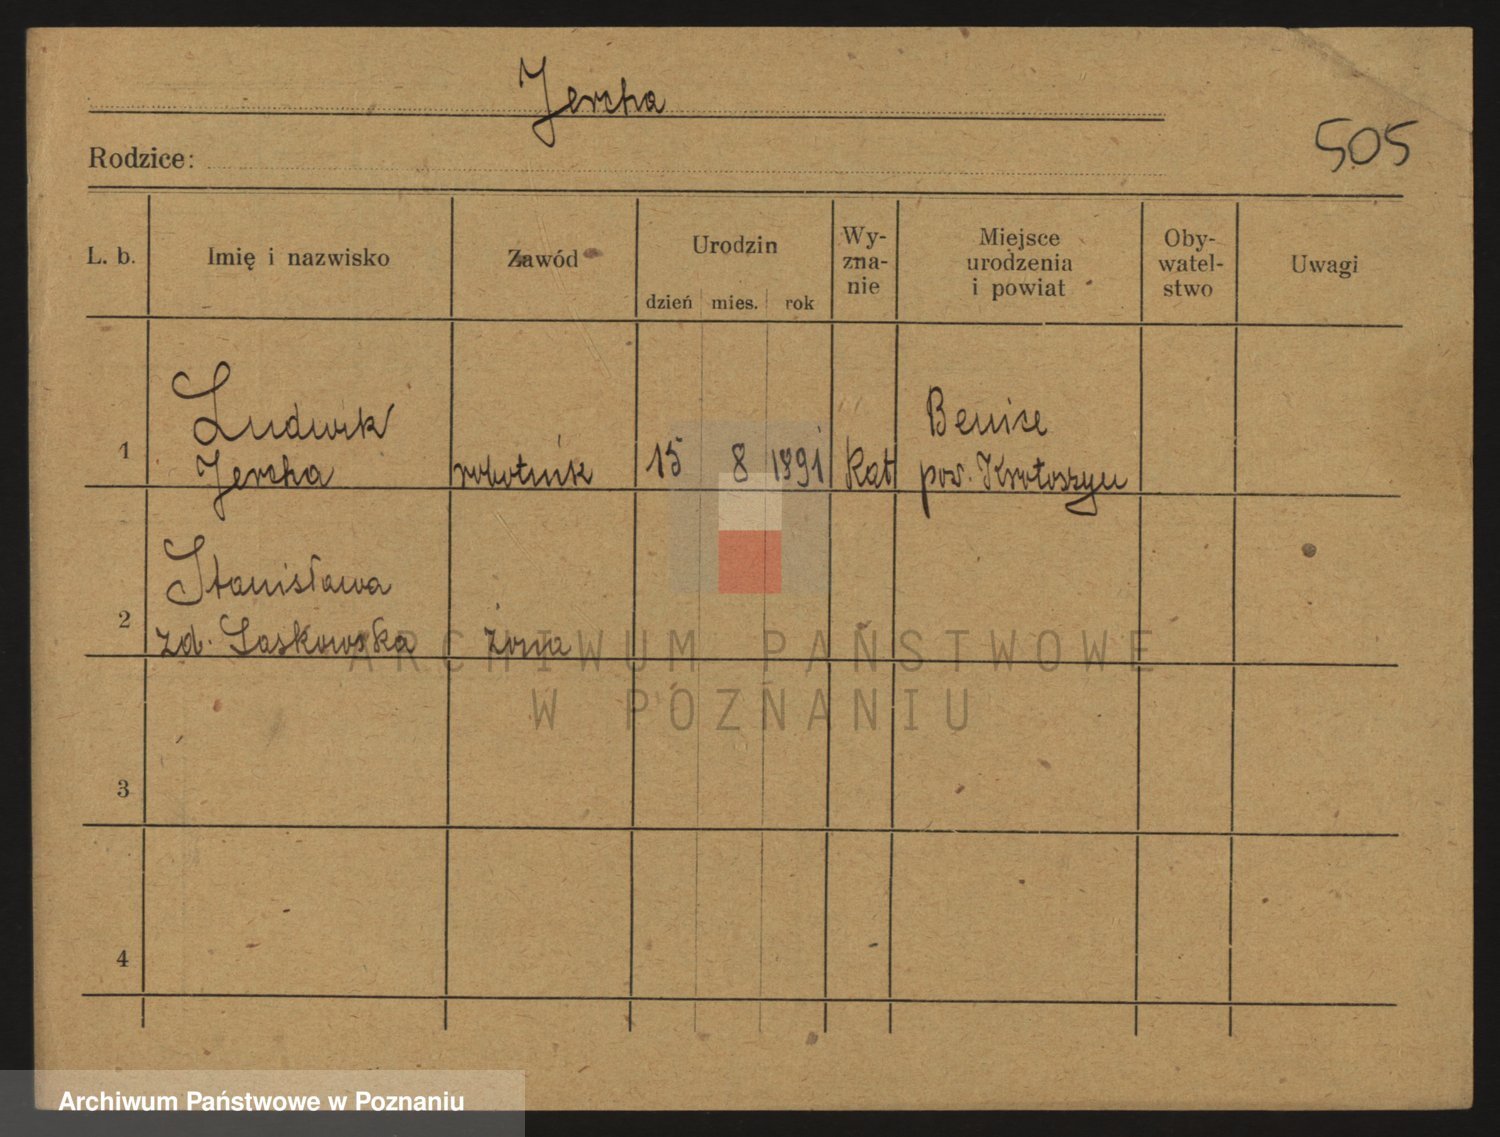 Jercha
505
Rodzice:
L. b.
Imię i nazwisko
Zawód
Urodzin
dzień mies. rok
Wy-
zna-
nie
Miejsce
urodzenia
i powiat
Oby-
watel-
stwo
Uwagi
1
Ludwik
Jercha
robotnik
15 8 1891
Kat
Benice
pow. Krotoszyn
2
Stanisława
zd. Laskowska
żona
3
4
ARCHIWUM PAŃSTWOWE
W POZNANIU
Archiwum Państwowe w Poznaniu